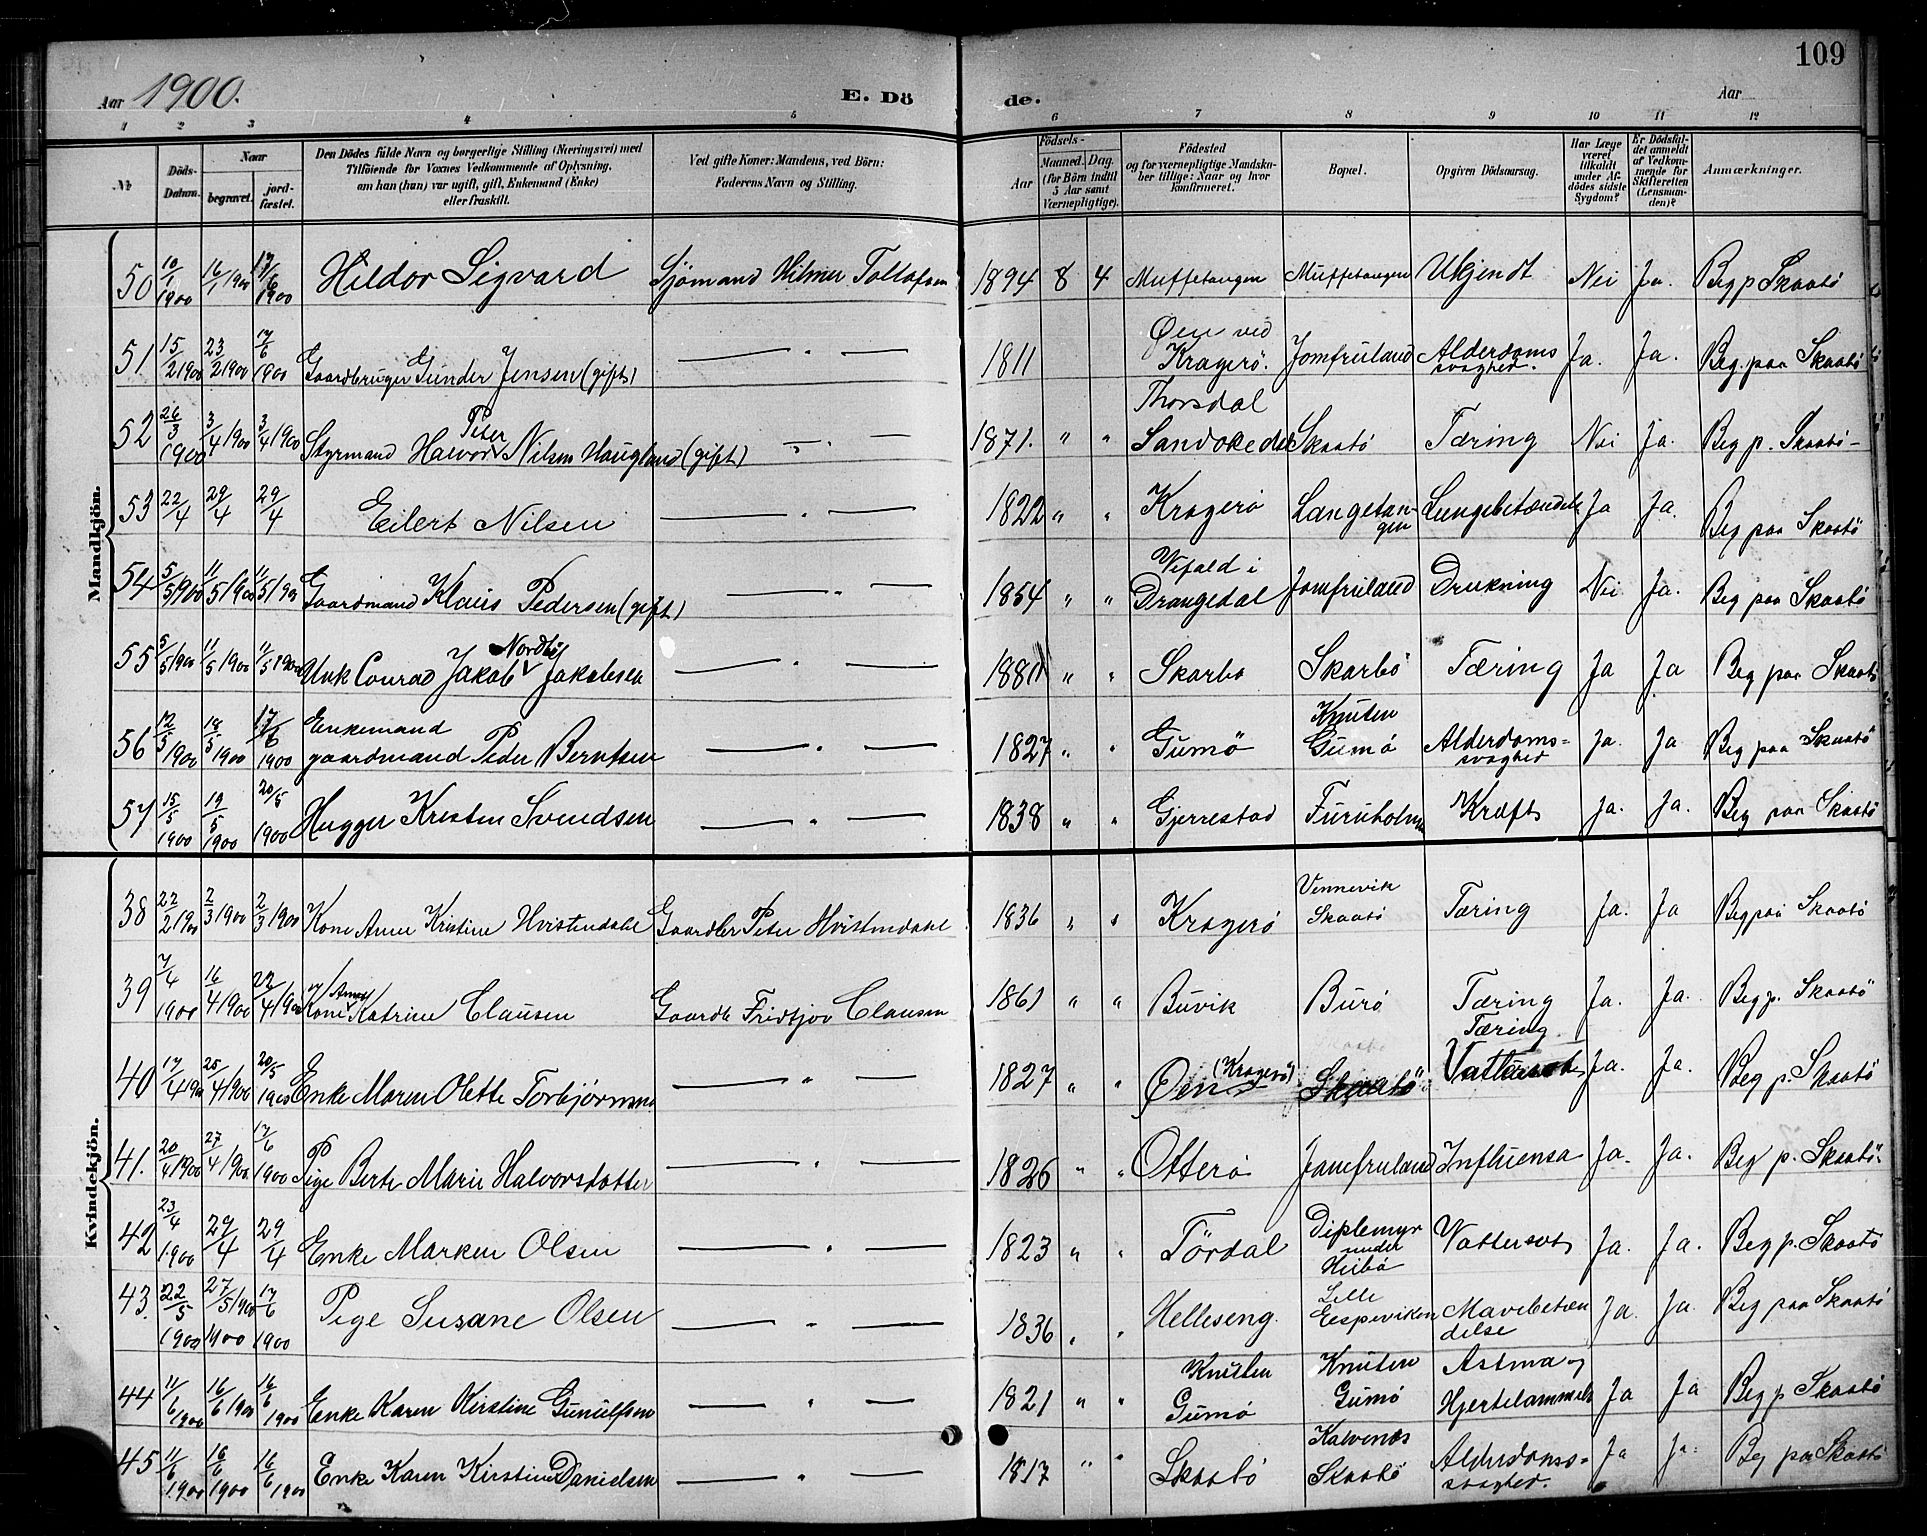 109
Aar 1900. E. Dö de. Aar
1 2 3 4 5 6 7 8 9 10 11 12
No
Döds-Datum.
Naar
begravet.
jordfæstet.
Den Dödes fulde Navn og borgerlige Stilling (Næringsvei) med
Tilföiende for Voxnes Vedkommende af Oplysning,
om han (hun) var ugift, gift, Enkemand (Enke)
eller fraskilt.
Ved gifte Koner: Mandens, ved Börn:
Faderens Navn og Stilling.
Födsels-
Aar
Maaned. Dag.
(for Börn indtil
5 Aar samt
Værnepligtige).
Födested
og for værnepligtige Mandskaber tillige: Naar og hvor
konfirmeret.
Bopæl.
Opgiven Dödsaarsag.
Har Læge
været
tilkaldt
under Afdödes sidste
Sygdom?
Er Dödsfaldet anmeldt
af Vedkommende for
Skifteretten
(Lensmanden)?
Anmærkninger.
Mandkjön.
50 10/1 1900 16/1 1900 17/6 1900 Hildor Sigvard Sjömand Hilmer Tollefsen 1894 8 4 Muffetangen Muffetangen Ukjendt Nei Ja. Beg p Skaatö
51 15/2 1900 23/2 1900 17/6 1900 Gaardbruger Gunder Jensen (gift) — " — 1811 Øen ved Kragerö. Jomfruland Alderdoms svaghed. Ja. Ja. Beg. paa Skaatö
52 26/3 1900 3/4 1900 3/4 1900 Styrmand Halvor Peter Nilsen Haugland (gift) — " — 1871. " " Thorsdal Sandökedal Skaatö Tæring Nei Ja. Beg p. Skaatö-
53 22/4 29/4 29/4 Eilert Nilsen — " — 1822 " " Kragerö Langetangen Lungebetændelse Ja Ja. Beg paa Skaatö
54 5/5 1900 11/5 1900 11/5 1900 Gaardmand Klaus Pedersen (gift) — " — 1854 " " Vefald i Drangedal Jomfruland Drukning Nei Ja. Beg paa Skaatö
55 5/5 1900 11/5 1900 11/5 1900 Unk Conrad Jakob Nordbö Jakobsen — " — 1881 " " Skarbo Skarbö Tæring Ja Ja Beg paa Skaatö
56 12/5 1900 18/5 1900 17/6 1900 Enkemand gaardmand Peder Berntsen — " — 1827 " " Gumö Knuten Gumö Alderdoms= svaghed Ja. Ja Beg paa Skaatö
57 15/5 1900 19/5 1900 20/5 1900 Hugger Kresten Svendsen — " — 1838 " " Gjerrestad Furuholmen Kræft Ja. Ja. Beg paa Skaatö
Kvindekjön.
38 22/2 1900 2/3 1900 2/3 1900 Kone Anne Kristine Hvistendahl Gaardbr Peter Hvistendahl 1836 " " Kragerö Vennevik Skaatö Tæring Ja. Ja Beg paa Skaatö
39 7/4 1900 16/4 1900 22/4 1900 Kone Anne Katrine Clausen Gaardb Fridtjov Clausen 1861 " " Buvik Burö Tæring Ja. Ja. Beg p. Skaatö
40 17/4 1900 25/4 1900 20/5 1900 Enke Maren Olette Torbjörnsen — " — 1827 " " Øen (Kragerö) Skaatö Tæring Vattersot Ja. Ja. Beg p. Skaatö
41. 20/4 1900 27/4 1900 17/6 1900 Pige Berte Marie Halvorsdatter — " — 1826 " " Otterö Jomfruland Influensa Ja. Ja. Beg p. Skaatö.
42 23/4 1900 29/4 29/4 Enke Marken Olsen — " — 1823 " " Tördal Diplemyr under Heibö Vattersot Ja. Ja. Beg p. Skaatö
43. 22/5 1900 27/5 1900 1900 17/6 1900 Pige Susane Olsen — " — 1836 " " Helleseng. Lille Eespeviken Mavebetændelse Ja. Ja Beg paa Skaatö
44 11/6 1900 16/6 1900 16/6 1900 Enke Karen Kirstine Gunulfsen — " — 1821 " " Knuten Gumö Knuten Gumö Astma og Hjertelammelse Ja Ja Beg p Skaatö
45 11/6 1900 16/6 1900 16/6 1900 Enke Karen Kirstine Danielsen — " — 1817 " " Skaatö Kalvenes Skaatö Alderdoms= svaghed. Ja Ja Beg paa Skaatö